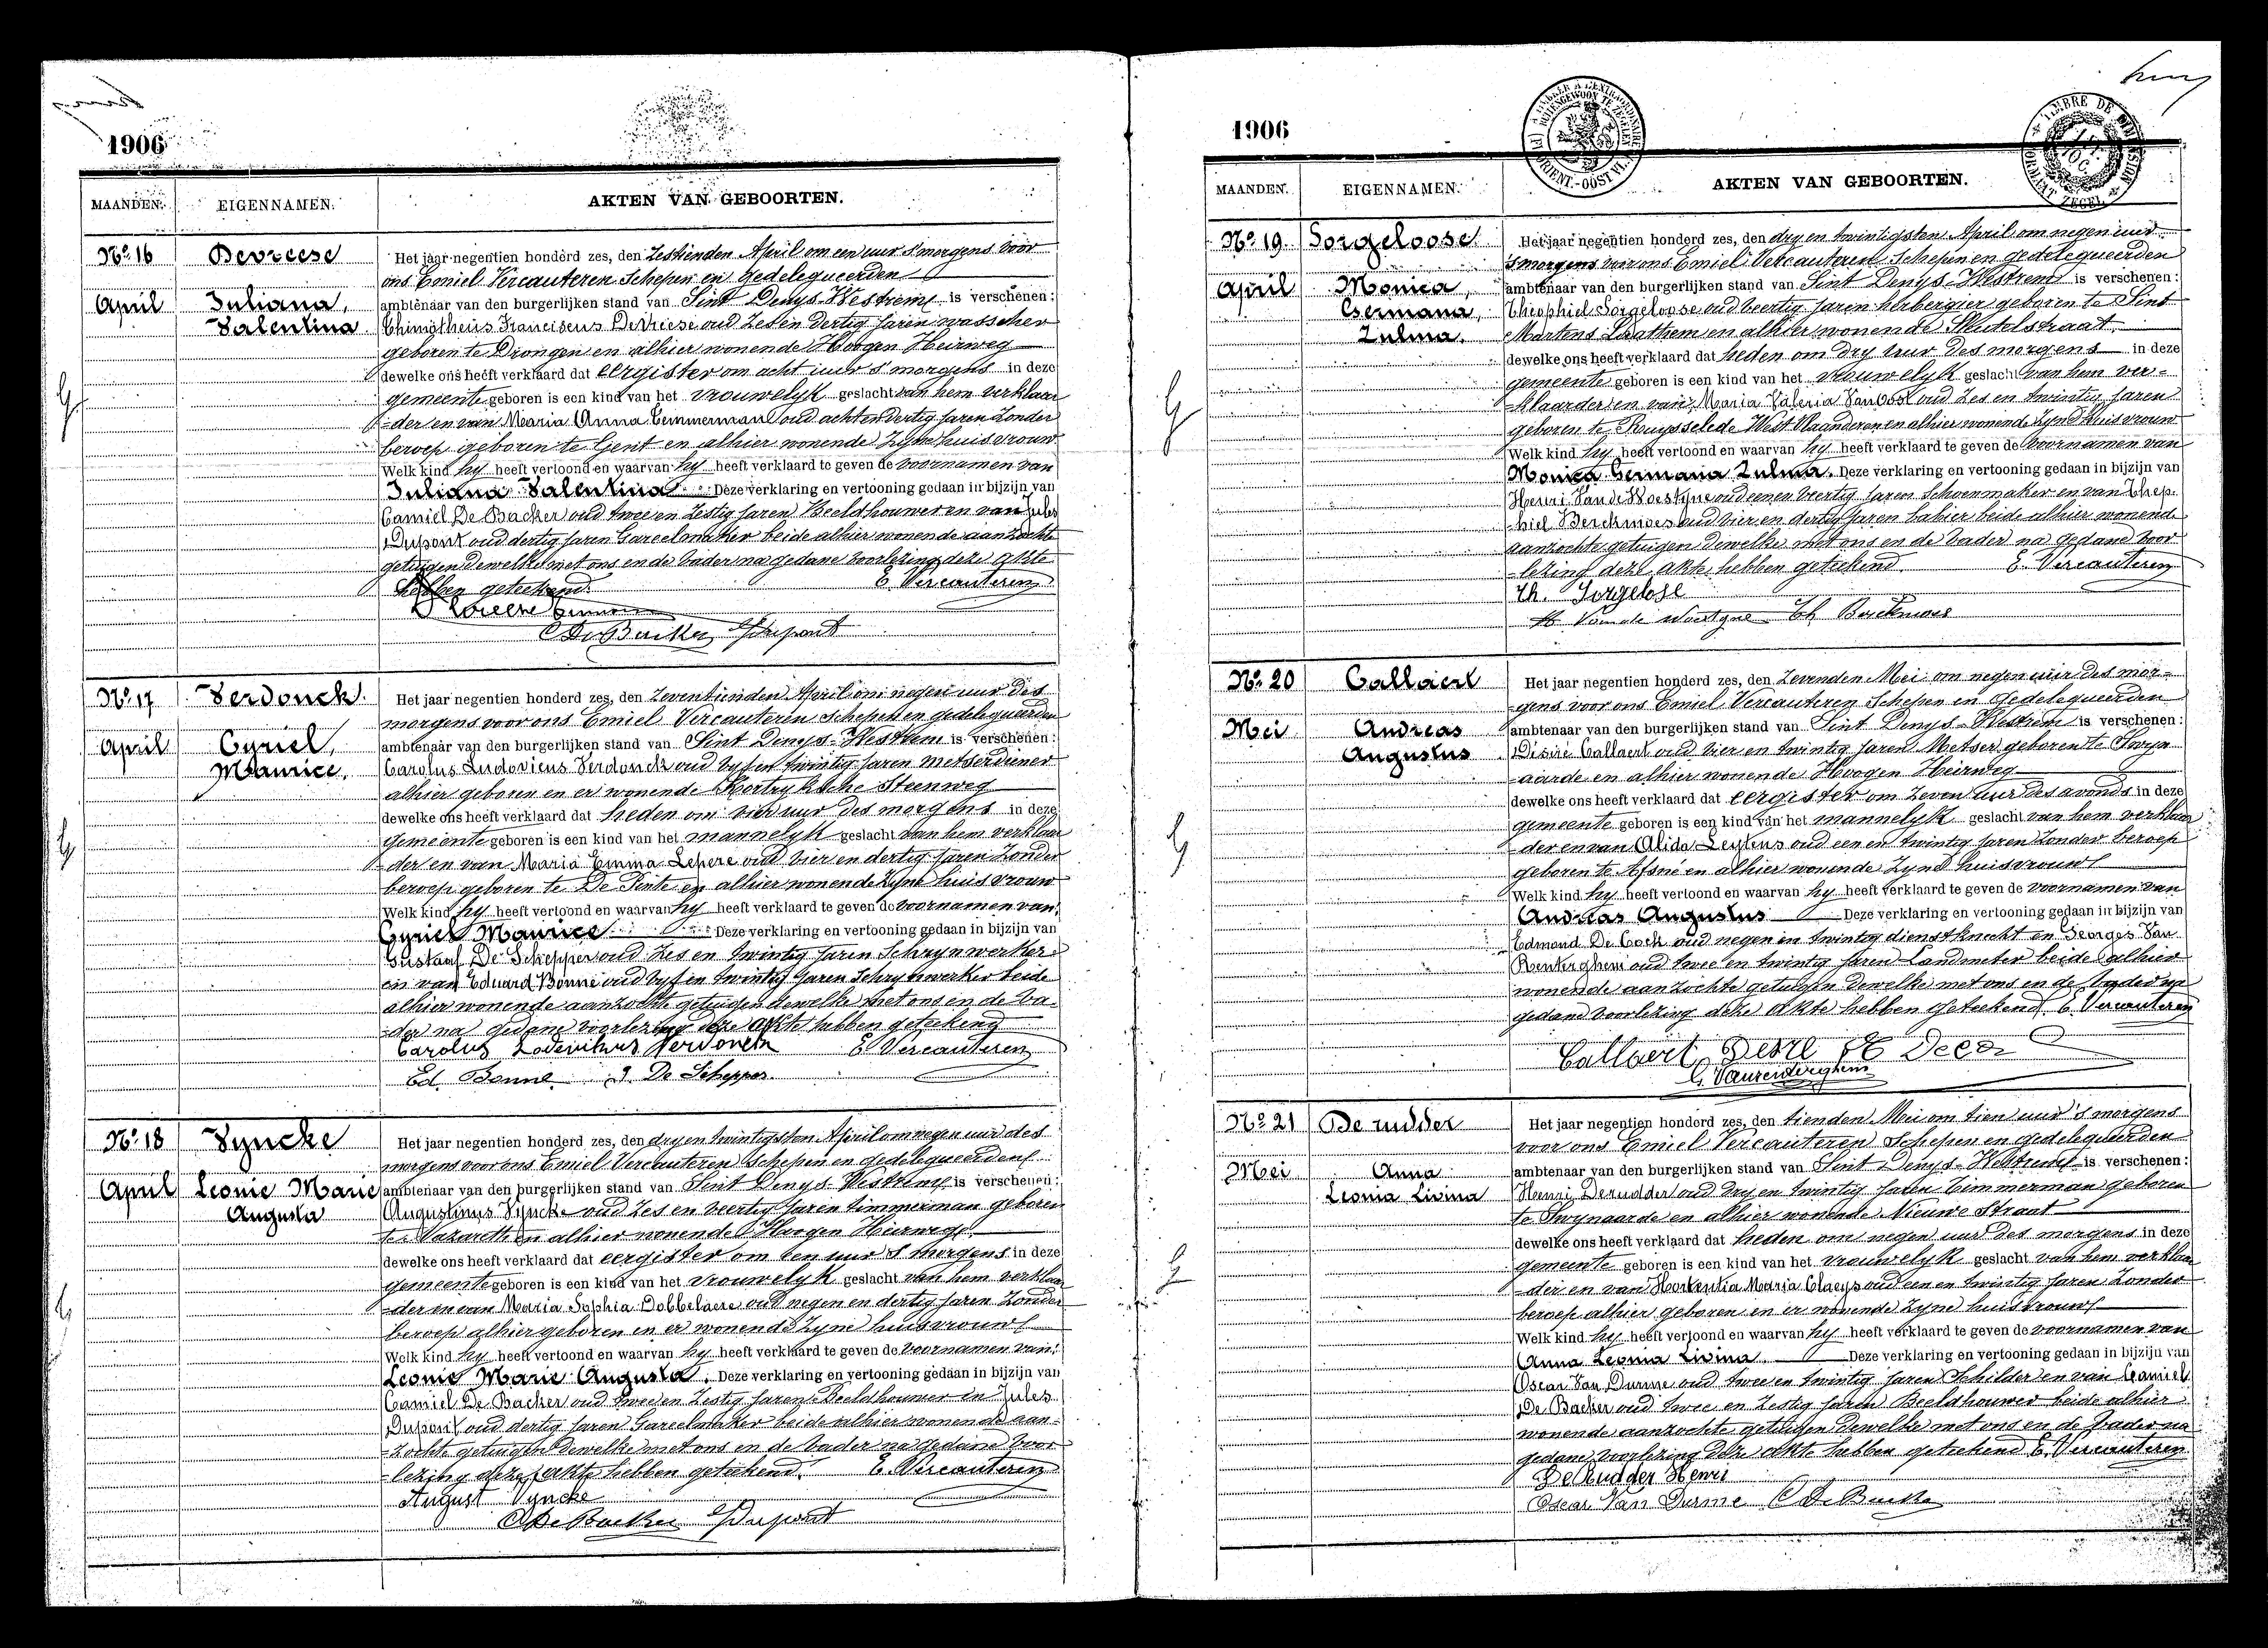 1906
MAANDEN. EIGENNAMEN. AKTEN VAN GEBOORTEN.
No. 16 Devreese Het jaar negentien honderd zes, den Zestienden April om een uur s'morgens voor
ons Emiel Vercauteren Schepen en Gedelequeerden
April Juliana, ambtenaar van den burgerlijken stand van Sint Denys-Westrem is verschenen:
Valentina Thimotheus Franciscus Devreese oud Zes en dertig jaren wasscher
geboren te Drongen en alhier wonende Hoogen Heirweg
dewelke ons heeft verklaard dat eergister om acht uur s'morgens in deze
gemeente geboren is een kind van het vrouwelyk geslacht van hem verklaar
-der en van Maria Anna Temmerman oud acht en dertig jaren Zonder
beroep geboren te Gent en alhier wonende Zyne huisvrouw
Welk kind hy heeft vertoond en waarvan hy heeft verklaard te geven de voornamen van
Juliana Valentina Deze verklaring en vertooning gedaan in bijzijn van
Camiel De Backer oud twee en Zestig jaren Beeldhouwer en van Jules
Dupont oud dertig jaren Gareelmaker beide alhier wonende aanzochte
getuigen dewelke met ons en de vader na gedane voorlezing deze akte
hebben geteekend. E. Vercauteren
C De Backer J Dupont
No. 17 Verdonck Het jaar negentien honderd zes, den Zeventienden April om negen uur des
morgens voor ons Emiel Vercauteren schepen en gedelequeerden
April Cyriel, ambtenaar van den burgerlijken stand van Sint Denys-Westrem is verschenen:
Maurice. Carolus Ludovicus Verdonck oud vyf en twintig jaren metserdiener
alhier geboren en er wonende Kortryksche Steenweg
dewelke ons heeft verklaard dat heden om vier uur des morgens in deze
gemeente geboren is een kind van het mannelyk geslacht van hem verklaar
-der en van Maria Emma Lepere oud vier en dertig jaren Zonder
beroep geboren te De Pinte en alhier wonende Zyne huisvrouw
Welk kind hy heeft vertoond en waarvan hy heeft verklaard te geven de voornamen van
Cyriel Maurice Deze verklaring en vertooning gedaan in bijzijn van
Gustaaf De Schepper oud Zes en twintig jaren Schrynwerker
en van Eduard Bonne oud vyf en twintig jaren Schrynwerker beide
alhier wonende aanzochte getuigen dewelke met ons en de va-
-der na gedane voorlezing deze akte hebben geteekend
Carolus Lodevicus Verdonck E. Vercauteren
Ed. Bonne G. De Schepper
No. 18 Vyncke Het jaar negentien honderd zes, den dry en twintigsten April om negen uur des
morgens voor ons Emiel Vercauteren Schepen en gedelequeerden
April Leonie Marie ambtenaar van den burgerlijken stand van Sint Denys-Westrem is verschenen:
Augusta Augustinus Vyncke oud Zes en veertig jaren timmerman geboren
te Nazareth en alhier wonende Hoogen Heirweg
dewelke ons heeft verklaard dat eergister om een uur s'morgens in deze
gemeente geboren is een kind van het vrouwelyk geslacht van hem verklaar
-der en van Maria Sophia Dobbelaere oud negen en dertig jaren Zonder
beroep alhier geboren en er wonende Zyne huisvrouw
Welk kind hy heeft vertoond en waarvan hy heeft verklaard te geven de voornamen van
Leonie Marie Augusta. Deze verklaring en vertooning gedaan in bijzijn van
Camiel De Backer oud twee en Zestig jaren Beeldhouwer en Jules
Dupont oud dertig jaren Gareelmaker beide alhier wonende aan-
-zochte getuigen dewelke met ons en de vader na gedane voor-
-lezing deze akte hebben geteekend. E. Vercauteren
August Vyncke
C De Backer J Dupont
1906
MAANDEN. EIGENNAMEN. AKTEN VAN GEBOORTEN.
No. 19 Sorgeloose Het jaar negentien honderd zes, den dry en twintigsten April om negen uur
s'morgens voor ons Emiel Vercauteren Schepen en gedelequeerden
April Monica, ambtenaar van den burgerlijken stand van Sint Denys-Westrem is verschenen:
Germana, Theophiel Sorgeloose oud veertig jaren herbergier geboren te Sint
Zulma. Martens Laathem en alhier wonende Sleutelstraat
dewelke ons heeft verklaard dat heden om dry uur des morgens in deze
gemeente geboren is een kind van het vrouwelyk geslacht van hem ver-
-klaarder en van Maria Valeria Van Oost oud Zes en twintig jaren
geboren te Ruysselede West Vlaanderen en alhier wonende Zyne huisvrouw
Welk kind hy heeft vertoond en waarvan hy heeft verklaard te geven de voornamen van
Monica Germana Zulma. Deze verklaring en vertooning gedaan in bijzijn van
Henri Van de Woestyne oud eenen veertig jaren Schoenmaker en van Theo-
phiel Berckmoes oud vier en dertig jaren bakier beide alhier wonende
aanzochte getuigen dewelke met ons en de vader na gedane voor
-lezing deze akte hebben geteekend. E. Vercauteren
Th. Sorgelose
H Van de Woestyne Th Berckmoes
No. 20 Callaert Het jaar negentien honderd zes, den Zevenden Mei om negen uur des mor-
-gens voor ons Emiel Vercauteren Schepen en Gedelequeerden
Mei Andreas ambtenaar van den burgerlijken stand van Sint Denys-Westrem is verschenen:
Augustus Disiré Callaert oud vier en twintig jaren Metser geboren te Swyn-
aarde en alhier wonende Hoogen Heirweg
dewelke ons heeft verklaard dat eergister om Zeven uur des avonds in deze
gemeente geboren is een kind van het mannelyk geslacht van hem verklaar
der en van Alida Leytens oud een en twintig jaren Zonder beroep
geboren te Afsné en alhier wonende Zyne huisvrouw
Welk kind hy heeft vertoond en waarvan hy heeft verklaard te geven de voornamen van
Andreas Augustus Deze verklaring en vertooning gedaan in bijzijn van
Edmond De Cock oud negen en twintig dienstknecht en Georges Van
Renterghem oud twee en twintig jaren Landmeter beide alhier
wonende aanzochte getuigen dewelke met ons en de vader na
gedane voorlezing deze akte hebben geteekend E. Vercauteren
Callaert
G. Vanrenterghem
No. 21 De rudder Het jaar negentien honderd zes, den tienden Mei om tien uur 's morgens
voor ons Emiel Vercauteren Schepen en gedelequeerden
Mei Anna ambtenaar van den burgerlijken stand van Sint Denys-Westrem is verschenen:
Leonia Livina Henri Derudder oud dry en twintig jaren Timmerman geboren
te Swynaarde en alhier wonende Nieuwe Straat
dewelke ons heeft verklaard dat heden om negen uur des morgens in deze
gemeente geboren is een kind van het vrouwelyk geslacht van hem verklaar
-der en van Hortentia Maria Claeys oud een en twintig jaren Zonder
beroep alhier geboren en er wonende Zyne huisvrouw
Welk kind hy heeft vertoond en waarvan hy heeft verklaard te geven de voornamen van
Anna Leonia Livina. Deze verklaring en vertooning gedaan in bijzijn van
Oscar Van Durme oud twee en twintig jaren Schilder en van Camiel
De Backer oud twee en Zestig jaren Beeldhouwer beide alhier
wonende aanzochte getuigen dewelke met ons en de vader na
gedane voorlezing deze akte hebben geteekend E. Vercauteren
De Rudder Henri
Oscar Van Durme C De Backer